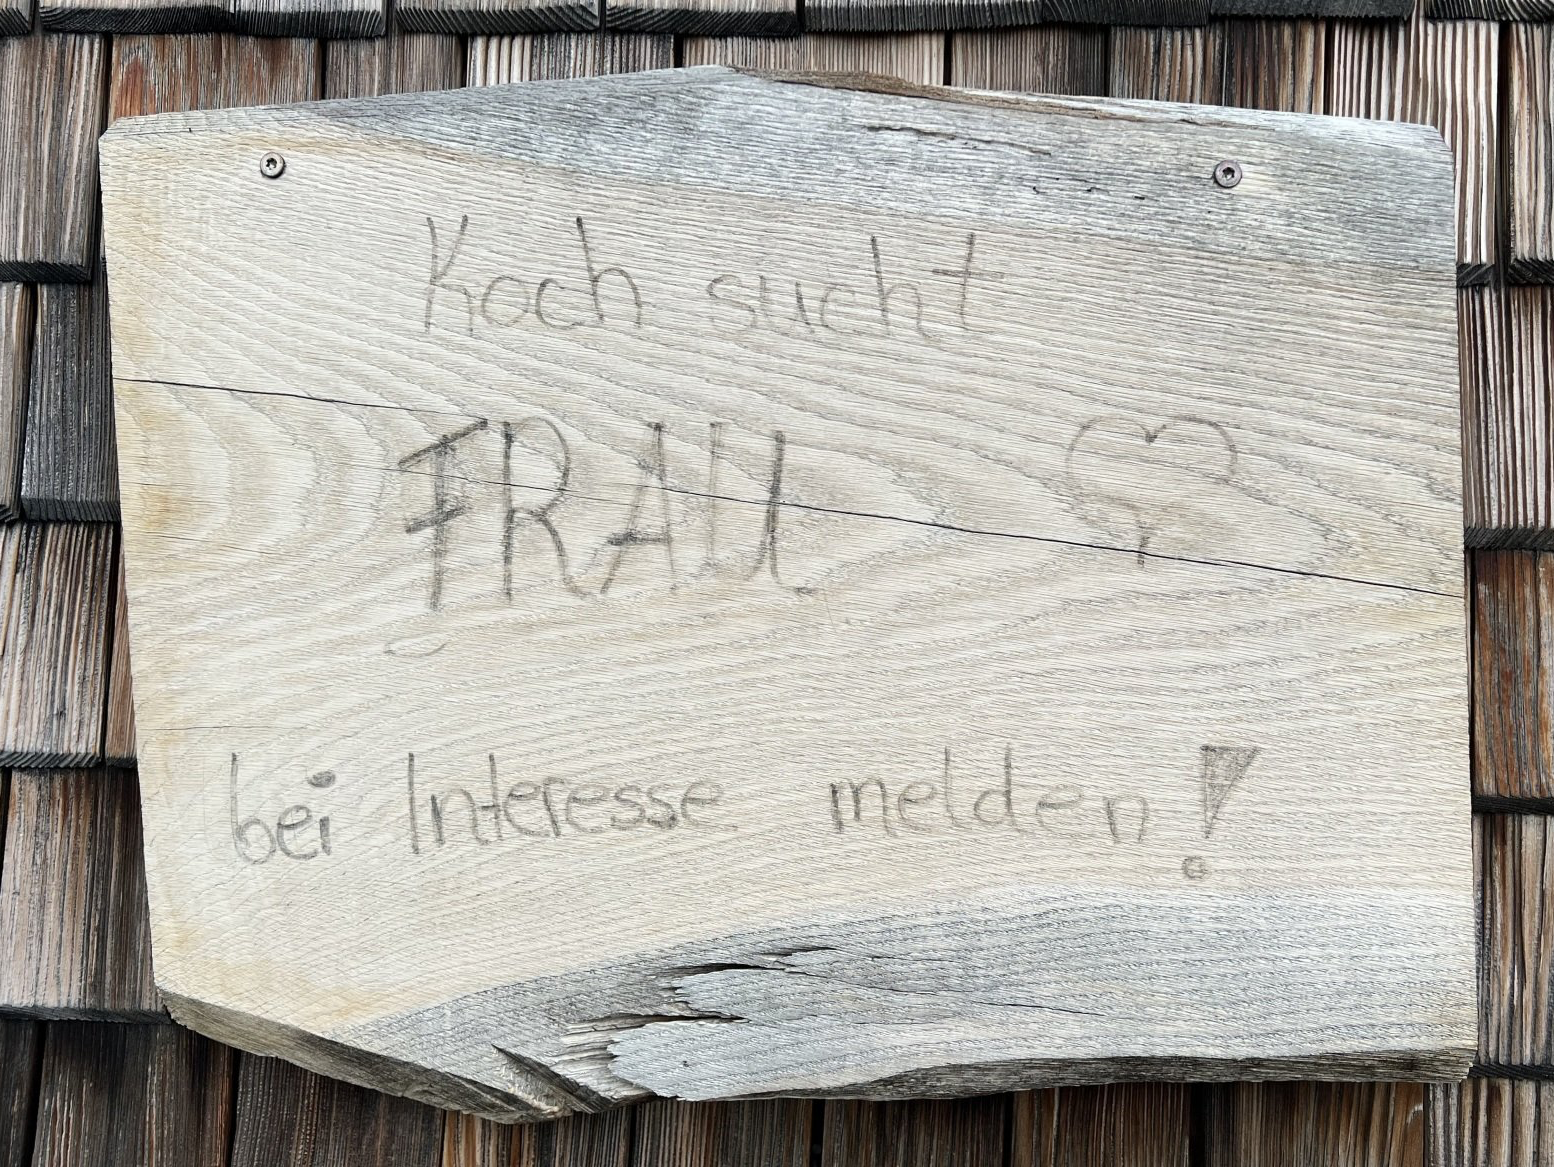 Koch sucht
FRAU
bei Interesse melden!